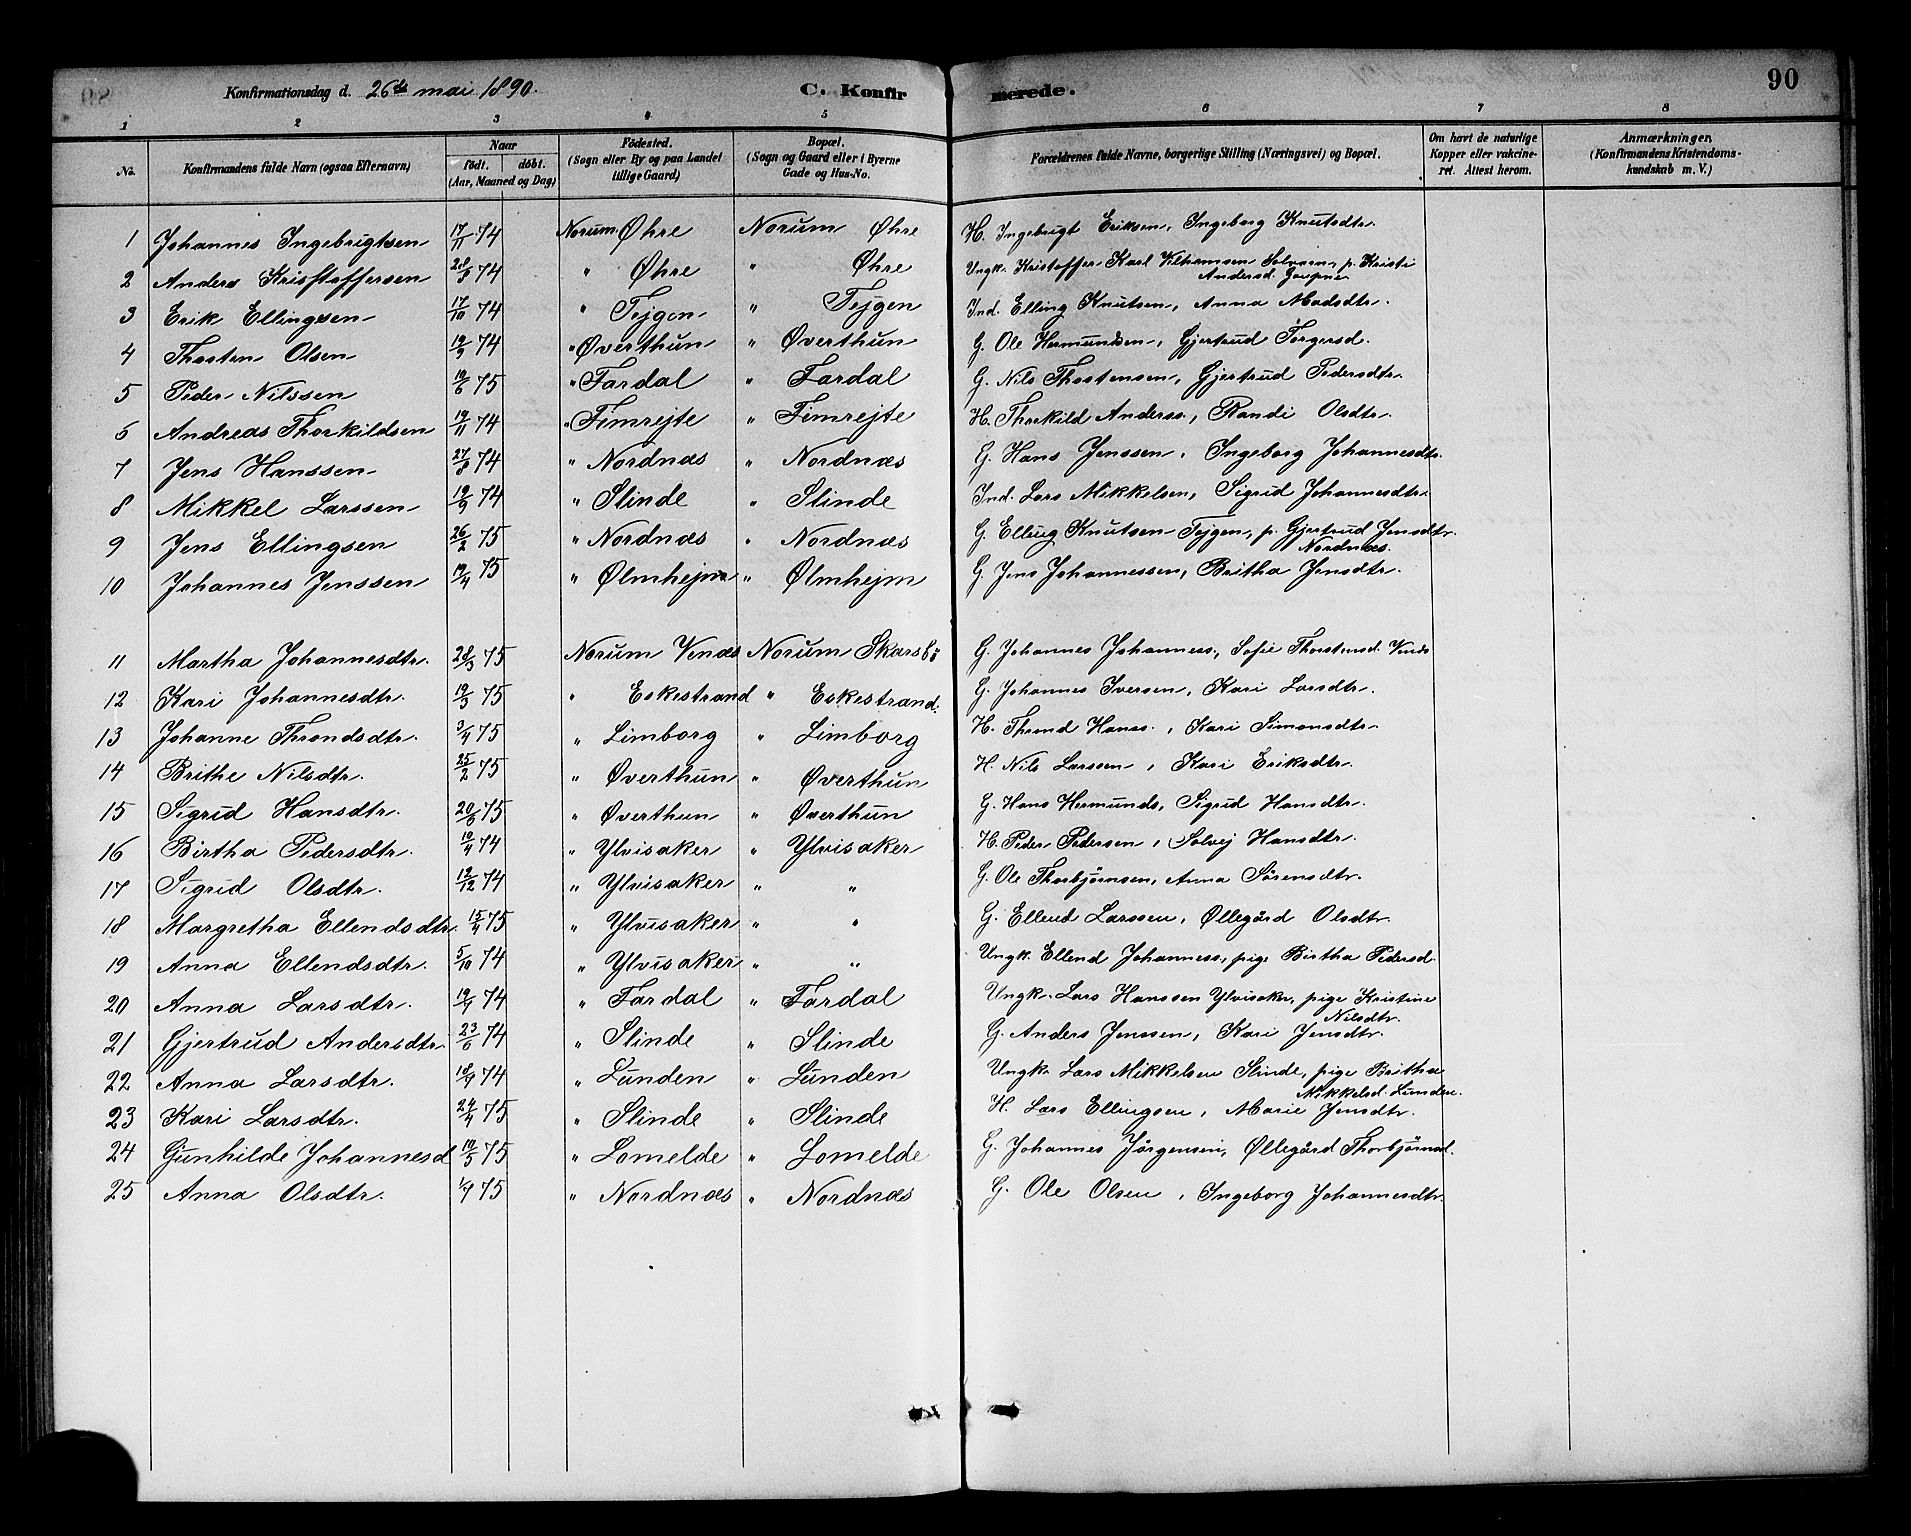 Konfirmationsdag d. 26de mai 1890. C. Konfirmerede. 90
1 2 3 4 5 6 7 8
No. Konfirmandens fulde Navn (ogsaa Efternavn) Naar födt. döbt. (Aar, Maaned og Dag) Födested. (Sogn eller By og paa Landet tillige Gaard) Bopæl. (Sogn og Gaard eller i Byerne Gade og Hus-No. Forældrenes fulde Navne, borgerlige Stilling (Næringsvei) og Bopæl. Om havt de naturlige Kopper eller vakcineret. Attest herom. Anmærkninger, (Konfirmandens Kristendomskundskab m. V.)
1 Johannes Ingebrigtsen 17/11 74 Norum Øhre Norum Øhre H. Ingebrigt Eriksen, Ingeborg Knutsdtr.
2 Anders Kristoffersen 28/3 74 " Øhre " Øhre Ungk. Kristoffer Karl Vilhamsen p. Kristi
Andersd.
3 Erik Ellingsen 17/10 74 " Tejgen " Tejgen Ind. Elling Knutsen, Anna Madsdtr.
4 Thosten Olsen 19/9 74 " Øverthun " Øverthun G. Ole Hermundsen, Gjertrud Torgersd.
5 Peder Nilssen 10/6 75 " Fardal " Fardal G. Nils Thostensen, Gjertrud Pedersdtr.
6 Andreas Thorkildsen 19/11 74 " Fimrejte " Fimrejte H. Thorkild Anderss., Randi Olsdtr.
7 Jens Hanssen 27/8 74 " Nordnæs " Nordnæs G. Hans Jenssen, Ingeborg Johannesdtr.
8 Mikkel Larssen 19/9 74 " Slinde " Slinde Ind. Lars Mikkelsen, Sigrid Johannesdtr.
9 Jens Ellingsen 26/2 75 " Nordnæs " Nordnæs G. Elling Knutsen Tejgen, p. Gjertrud Jensdtr.
Nordnæs.
10 Johannes Jenssen 19/4 75 " Ølmhejm " Ølmhejm G. Jens Johannessen, Britha Jensdtr.
11 Martha Johannesdtr. 28/3 75 Norum Venæs Norum Skarsbö G. Johannes Johanness., Sofie Thorstensd. Venæs
12 Kari Johannesdtr. 19/3 75 " Eskestrand " Eskestrand. G. Johannes Iversen, Kari Larsdtr.
13 Johanne Throndsdtr. 3/4 75 " Limborg " Limborg H. Thrond Hanss., Kari Simonsdtr.
14 Brithe Nilsdtr. 25/2 75 " Øverthun " Øverthun H. Nils Larssen, Kari Eriksdtr.
15 Sigrid Hansdtr. 20/6 75 " Øverthun " Øverthun G. Hans Hermunds, Sigrid Hansdtr.
16 Birtha Pedersdtr. 10/4 74 " Ylvisaker " Ylvisaker H. Peder Pedersen, Solvej Hansdtr.
17 Sigrid Olsdtr. 12/12 74 " Ylvisaker " " G. Ole Thorbjørnsen, Anna Sörensdtr.
18 Margretha Ellendsdtr. 15/4 75 " Ylvisaker " " G. Ellend Larssen, Øllegård Olsdtr.
19 Anna Ellendsdtr. 5/10 74 " Ylvisaker " " Ungk. Ellend Johanness., pige Birtha Pedersd.
20 Anna Larsdtr. 19/9 74 " Fardal " Fardal Ungk. Lars Hanssen Ylvisaker, pige Kristine
Nilsdtr.
21 Gjertrud Andersdtr. 23/6 74 " Slinde " Slinde G. Anders Jenssen, Kari Jensdtr.
22 Anna Larsdtr. 18/9 74 " Lunden " Lunden Ungk. Lars Mikkelsen Slinde, pige Britha
Mikkelsd. Lunden.
23 Kari Larsdtr. 24/4 75 " Slinde " Slinde H. Lars Ellingsen, Marie Jensdtr.
24 Gunhilde Johannesd 10/5 75 " Lomelde " Lomelde G. Johannes Jörgensen, Øllegård Thorbjörnsd.
25 Anna Olsdtr. 1/4 75 " Nordnæs " Nordnæs G. Ole Olsen, Ingeborg Johannesdtr.